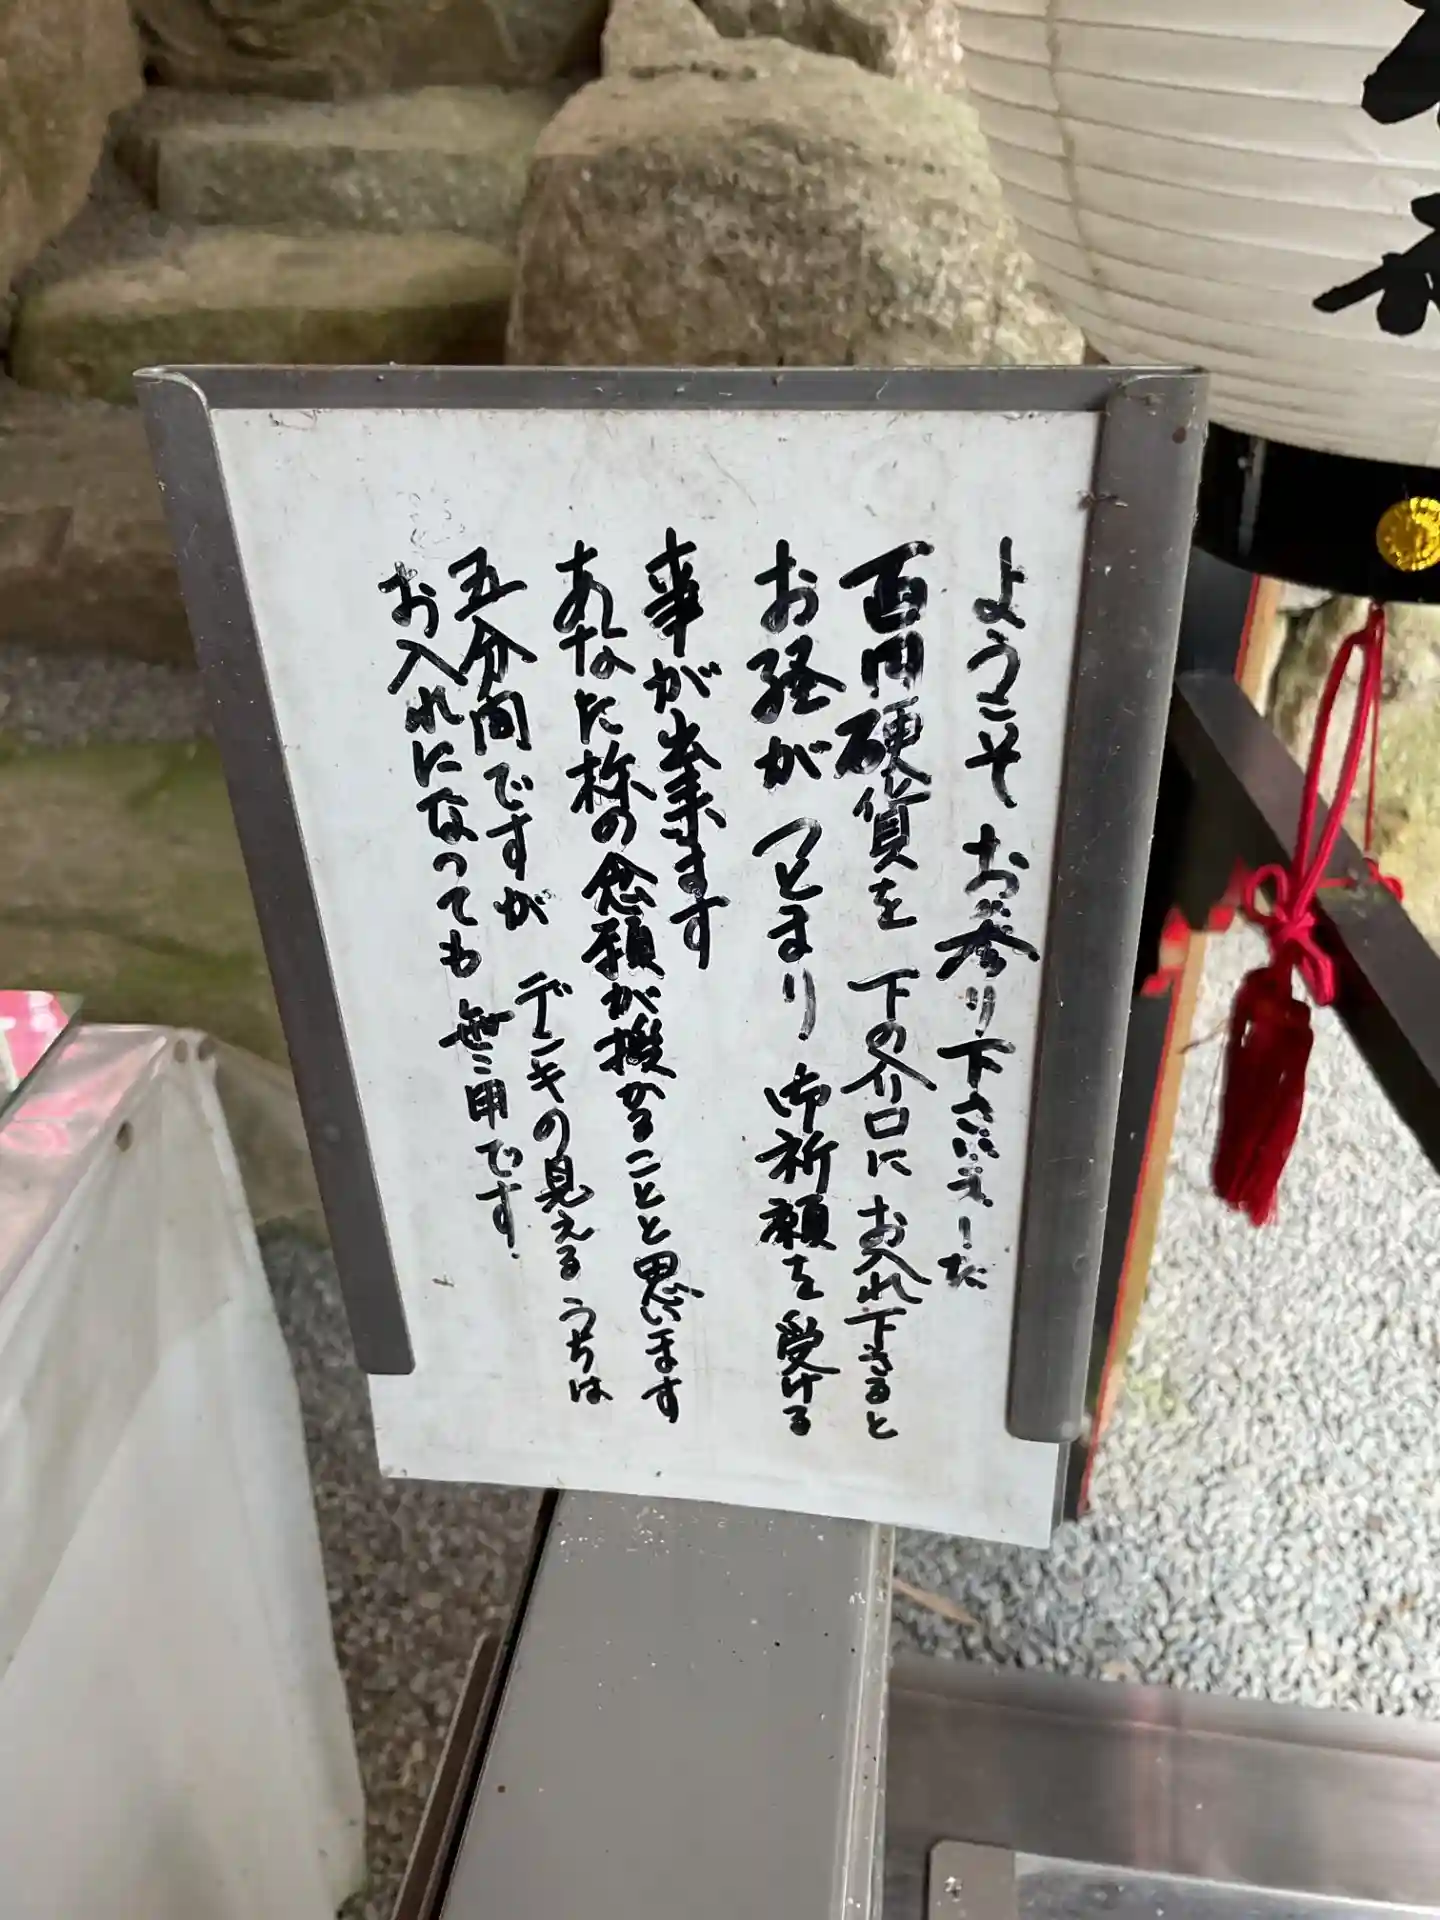 ようこそ お参り下さいました
百円硬貨を 下の介口にお入れ下さると
お経が つとまり 御祈願を受ける
事が出来ます
あなた様の念願が授かることと思います
五分間ですが デンキの見えるうちは
お入れになっても 無用です.